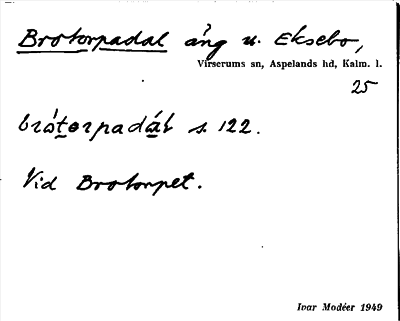 Brotorpadal äng u. Eksebo,
Virserums sn, Aspelands hd, Kalm. l.
25
bròterpadál s. 122.
Vid Brotorpet.
Ivar Modéer 1949